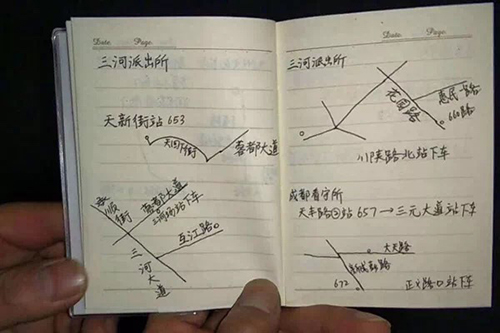 Date. Page.
三河派出所
天新街站 653
天回下街
蓉都大道
顺
街
蓉都大道
站下车
互江路
三
河
大
道
Date. Page.
三河派出所
花园路
惠民路
660路
川陕路北站下车
成都看守所
站 657→三元大道站下车
大天路
672
正义路口站下车